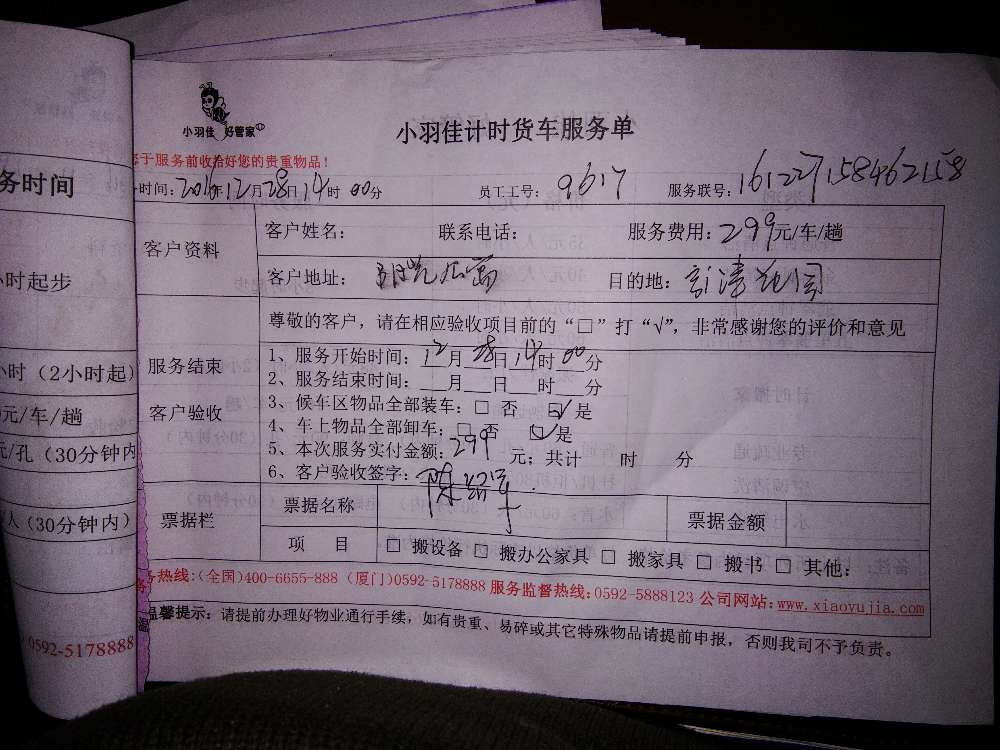 小羽佳 好管家
小羽佳计时货车服务单
于服务前收拾好您的贵重物品！
时间：2016年12月28日14时00分 员工工号：9617 服务联号：161227158462158
客户资料
客户姓名： 联系电话： 服务费用：299元/车/趟
客户地址： 目的地：
尊敬的客户，请在相应验收项目前的“□”打“√”，非常感谢您的评价和意见
服务结束
客户验收
1、服务开始时间：12月28日14时00分
2、服务结束时间：__月__日__时__分
3、候车区物品全部装车：□ 否 ☑ 是
4、车上物品全部卸车：□ 否 ☑ 是
5、本次服务实付金额：299元；共计 时 分
6、客户验收签字：
票据栏
票据名称 票据金额
项 目 □ 搬设备 □ 搬办公家具 □ 搬家具 □ 搬书 □ 其他：
务热线：(全国)400-6655-888 (厦门)0592-5178888 服务监督热线：0592-5888123 公司网站：www.xiaoyujia.com
温馨提示：请提前办理好物业通行手续，如有贵重、易碎或其它特殊物品请提前申报，否则我司不予负责。
务时间
小时起步
小时（2小时起）
元/车/趟
元/孔（30分钟内
人（30分钟内）
0592-5178888